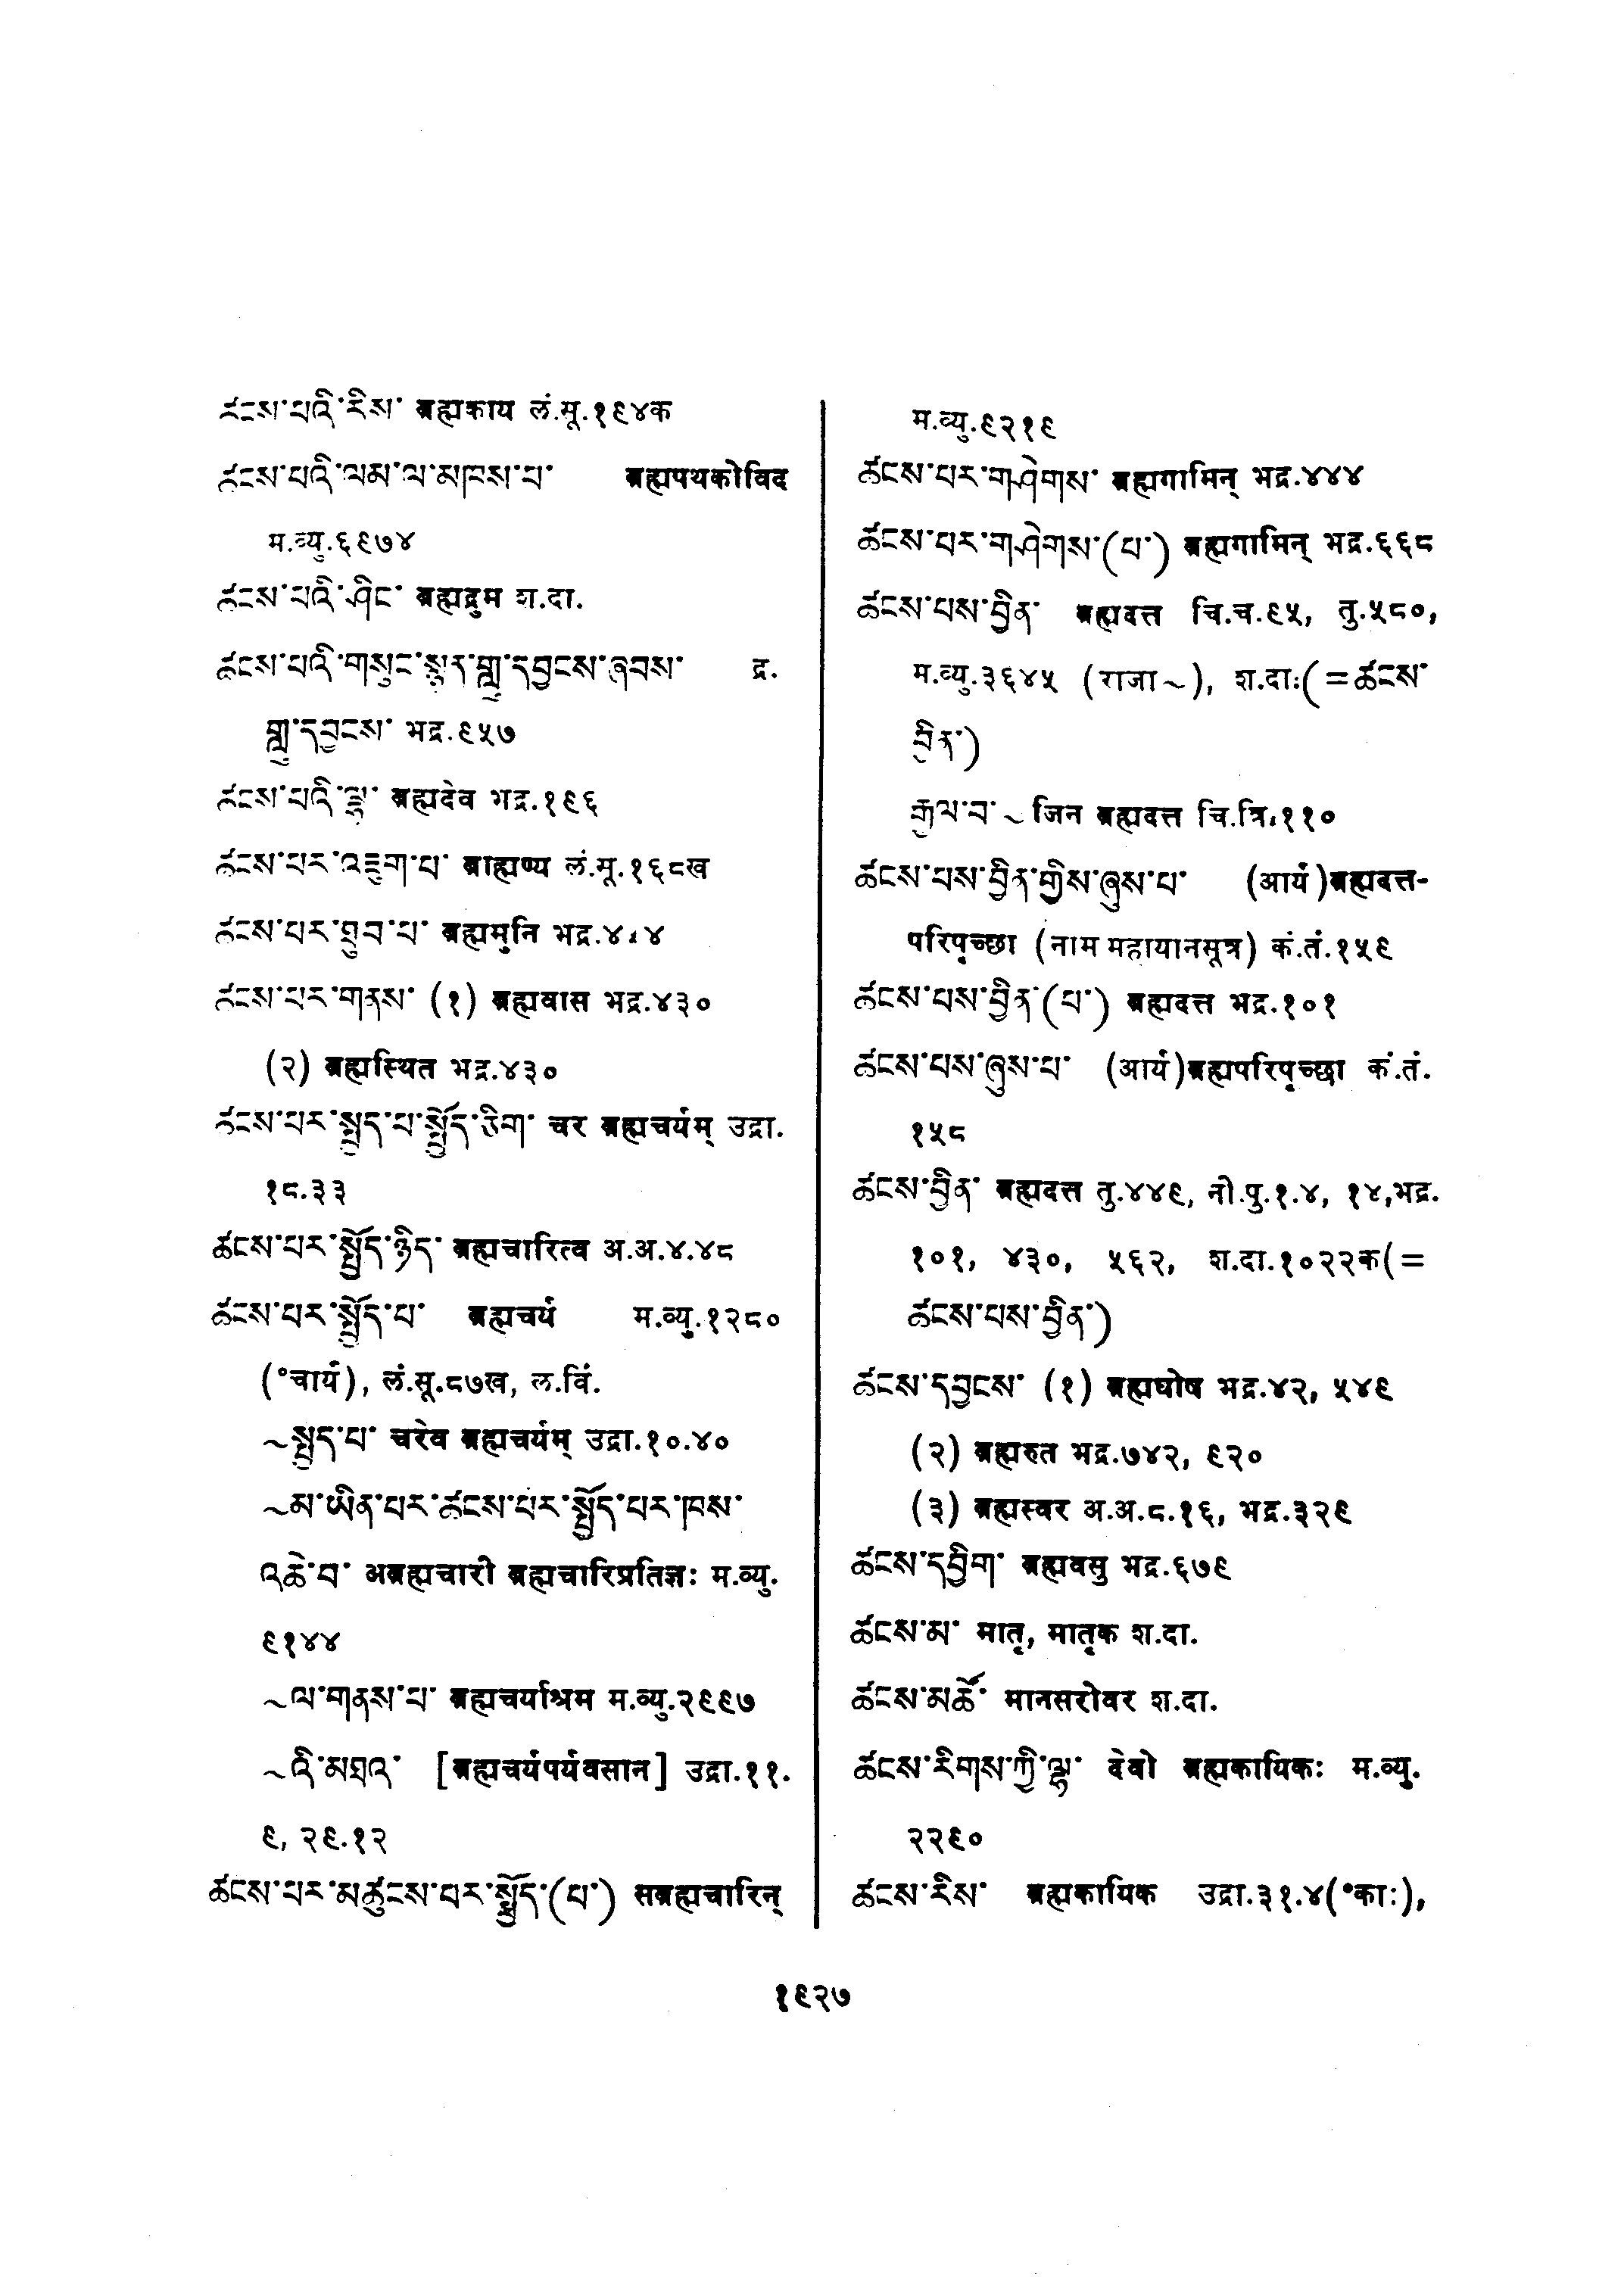 ཚངས་པའི་རིས་ ब्रह्मकाय लं.सू.१९४क
ཚངས་པའི་ལམ་ལ་མཁས་པ་ ब्रह्मपथकोविद
म.व्यु.६९७४
ཚངས་པའི་ཤིང་ ब्रह्मद्रुम श.दा.
ཚངས་པའི་གསུང་སྙན་གླུ་དབྱངས་ཞབས་ द्र.
གླུ་དབྱངས་ भद्र.९५७
ཚངས་པའི་ལྷ་ ब्रह्मदेव भद्र.१९६
ཚངས་པར་འཇུག་པ་ ब्राह्मण्य लं.सू.१६८ख
ཚངས་པར་ཐུབ་པ་ ब्रह्ममुनि भद्र.
ཚངས་པར་གནས་ (१) ब्रह्मवास भद्र.४३०
(२) ब्रह्मस्थित भद्र.४३०
ཚངས་པར་སྤྱད་པ་སྤྱོད་ཅིག་ चर ब्रह्मचर्यम् उद्रा.
१८.३३
ཚངས་པར་སྤྱོད་ཉིད་ ब्रह्मचारित्व अ.अ.४.४८
ཚངས་པར་སྤྱོད་པ་ ब्रह्मचर्य म.व्यु.१२८०
(°चार्य), लं.सू.८७ख, ल.वि.
~སྤྱད་པ་ चरेव ब्रह्मचर्यम् उद्रा.१०.४०
~མ་ཡིན་པར་ཚངས་པར་སྤྱོད་པར་ཁས་
འཆེ་བ་ अब्रह्मचारी ब्रह्मचारिप्रतिज्ञः म.व्यु.
९१४४
~ལ་གནས་པ་ ब्रह्मचर्याश्रम म.व्यु.२९९७
~འི་མཐའ་ [ब्रह्मचर्यपर्यवसान] उद्रा.११.
९, २९.१२
ཚངས་པར་མཚུངས་པར་སྤྱོད་(པ་) सब्रह्मचारिन्
म.व्यु.९२१९
ཚངས་པར་གཤེགས་ ब्रह्मगामिन् भद्र.४४४
ཚངས་པར་གཤེགས་(པ་) ब्रह्मगामिन् भद्र.६६८
ཚངས་པས་བྱིན་ ब्रह्मदत्त चि.च.९५, तु.५८०,
म.व्यु.३६४५ (राजा~), श.दा.(=ཚངས་
བྱིན་)
རྒྱལ་བ་~ जिन ब्रह्मदत्त चि.त्रि.११०
ཚངས་པས་བྱིན་གྱིས་ཞུས་པ་ (आर्य)ब्रह्मदत्त-
परिपृच्छा (नाम महायानसूत्र) कं.तं.१५९
ཚངས་པས་བྱིན་(པ་) ब्रह्मदत्त भद्र.१०१
ཚངས་པས་ཞུས་པ་ (आर्य)ब्रह्मपरिपृच्छा कं.तं.
१५८
ཚངས་བྱིན་ ब्रह्मदत्त तु.४४९, नी.पु.१.४, १४,भद्र.
१०१, ४३०, ५६२, श.दा.१०२२क(=
ཚངས་པས་བྱིན་)
ཚངས་དབྱངས་ (१) ब्रह्मघोष भद्र.४२, ५४९
(२) ब्रह्मरुत भद्र.७४२, ९२०
(३) ब्रह्मस्वर अ.अ.८.१६, भद्र.३२९
ཚངས་དབྱིག་ ब्रह्मवसु भद्र.६७९
ཚངས་མ་ मातृ, मातृक श.दा.
ཚངས་མཚོ་ मानसरोवर श.दा.
ཚངས་རིགས་ཀྱི་ལྷ་ देवो ब्रह्मकायिकः म.व्यु.
२२९०
ཚངས་རིས་ ब्रह्मकायिक उद्रा.३१.४(°काः),
१९२७